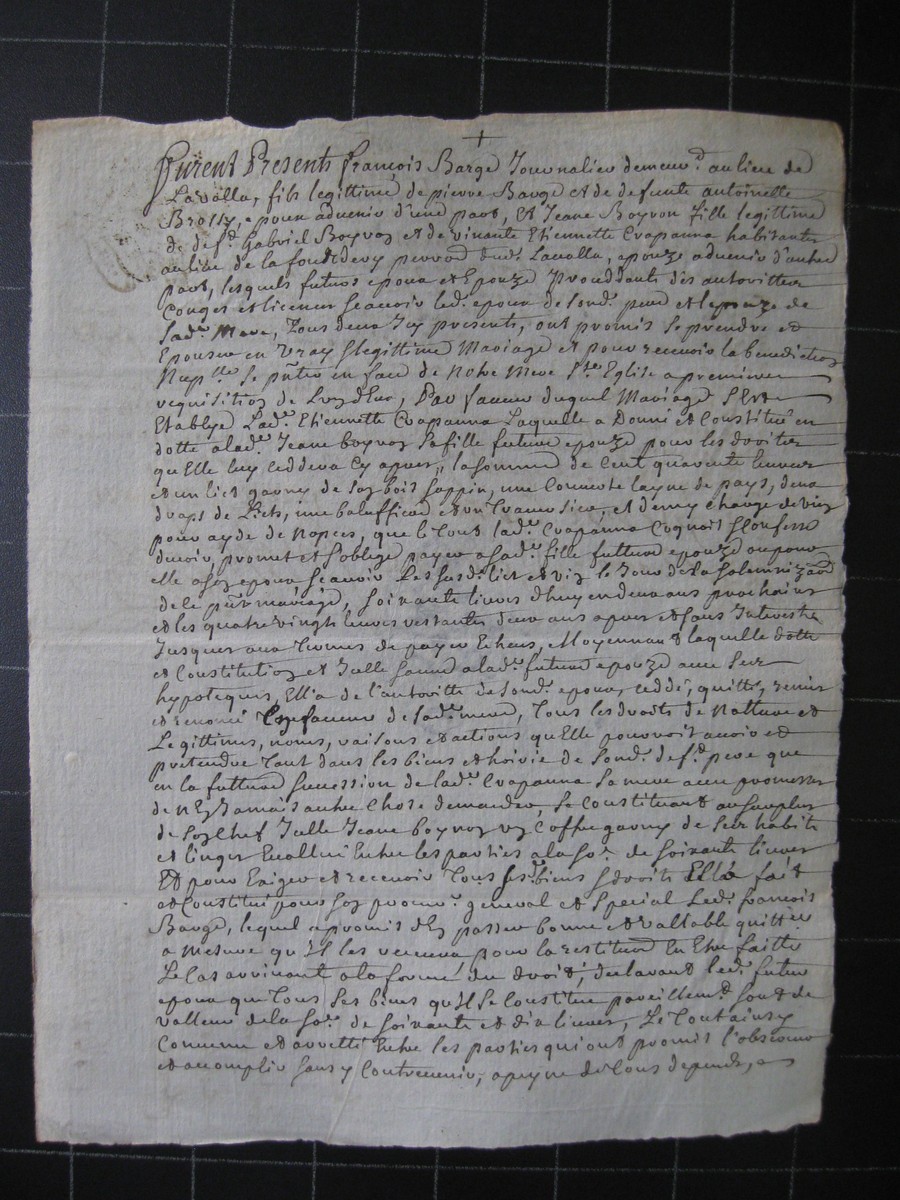 +
furent Presents françois Barge Journalier demeur.d au lieu de
Lavalla, fils legittime de pierre Barge et de defunte antoinette
Brossy, epoux aduenir d'une part, Et Jeane Boyron fille legittime
de def.t Gabriel Boyroz et de vivante Etiennette Crapanna habitantes
au lieu de la font devy parroisse dud.t Lavalla, epouze aduenir d'autre
part, lesquels futurs epoux et Epouze Proceddants des autorittes
Conges et licences scauoir led.t epoux de sond.t pere et lepouze de
sad.te Mere, Tous deux Icy presents, ont promis se prendre et
Epouser en vray & legittime Mariage et pour receuoir la benediction
Nup.lle se pñter en face de Notre Mere S.te Eglise a premiere
requisition de L'un d'Eux, Par faueur duquel Mariage s'Est
Etablye Lad.te Etiennette Crapanna Laquelle a Donné et Constitué en
dotte a lad.te Jeane boyroz sa fille future epouze pour les droits
qu'Elle luy ceddera Cy apres, la somme de Cent quarente liures
et un lict garny de son bois sappin, une Couuerte layne de pays, deux
draps de Licts, une balouffiere et un Trauersier, et demy charge de vin
pour ayde de Nopces, que le Tout lad.te Crapanna Cognoit & Confesse
deuoir, promet et s'oblige payer a sad.te fille future epouze ou pour
elle a son epoux scauoir Les susd.ts lict et vin le Jour de la solemnizaõn
de le pñt mariage, soixante liures d'huy en deux ans prochains
et les quatre vingts liures restantes deux ans apres et sans Interests
Jusques aux Termes de payer Echeus, Moyennant laquelle dotte
et Constitution et Icelle sauue a lad.te future epouze auec ses
hypoteques, Ell'a de l'autoritté de sond.t epoux, ceddé, quitté, remis
et renoncé En faueur de sad.te mere, Tous les droits de Nature et
Legittimes, noms, raisons et actions qu'Elle pourroit auoir et
prétendre Tant dans les biens et hoirie de sond.t def.t pere que
en la future succession de lad.te Crapanna sa mere auec promesse
de n'En Jamais autre Chose demander, se Constituant au surplus
de son Chef Icelle Jeane boyroz un Coffre garny de ses habits
et linges Euallué Entre les parties a la so.e de soixante liures
Et pour Exiger et receuoir Tous ses.d biens & droits Ell'a fait
et Constitué pour son procur.r general et special Led.t francois
Barge, lequel a promis d'En passer bonne et vallable quittce
a mesure qu'Il les receura, pour la restitution En Etre faitte
Le Cas arriuant a la forme du droit, declarant led.t futur
epoux que Tous ses biens qu'Il se Constitue pareillem.t sont de
valleur de la so.e de soixante et dix liures, Le Tout ainsy
Conuenu et arretté Entre les parties qui ont promis l'obseruer
et accomplir sans y Contreuenir, a peyne de Tous depends,